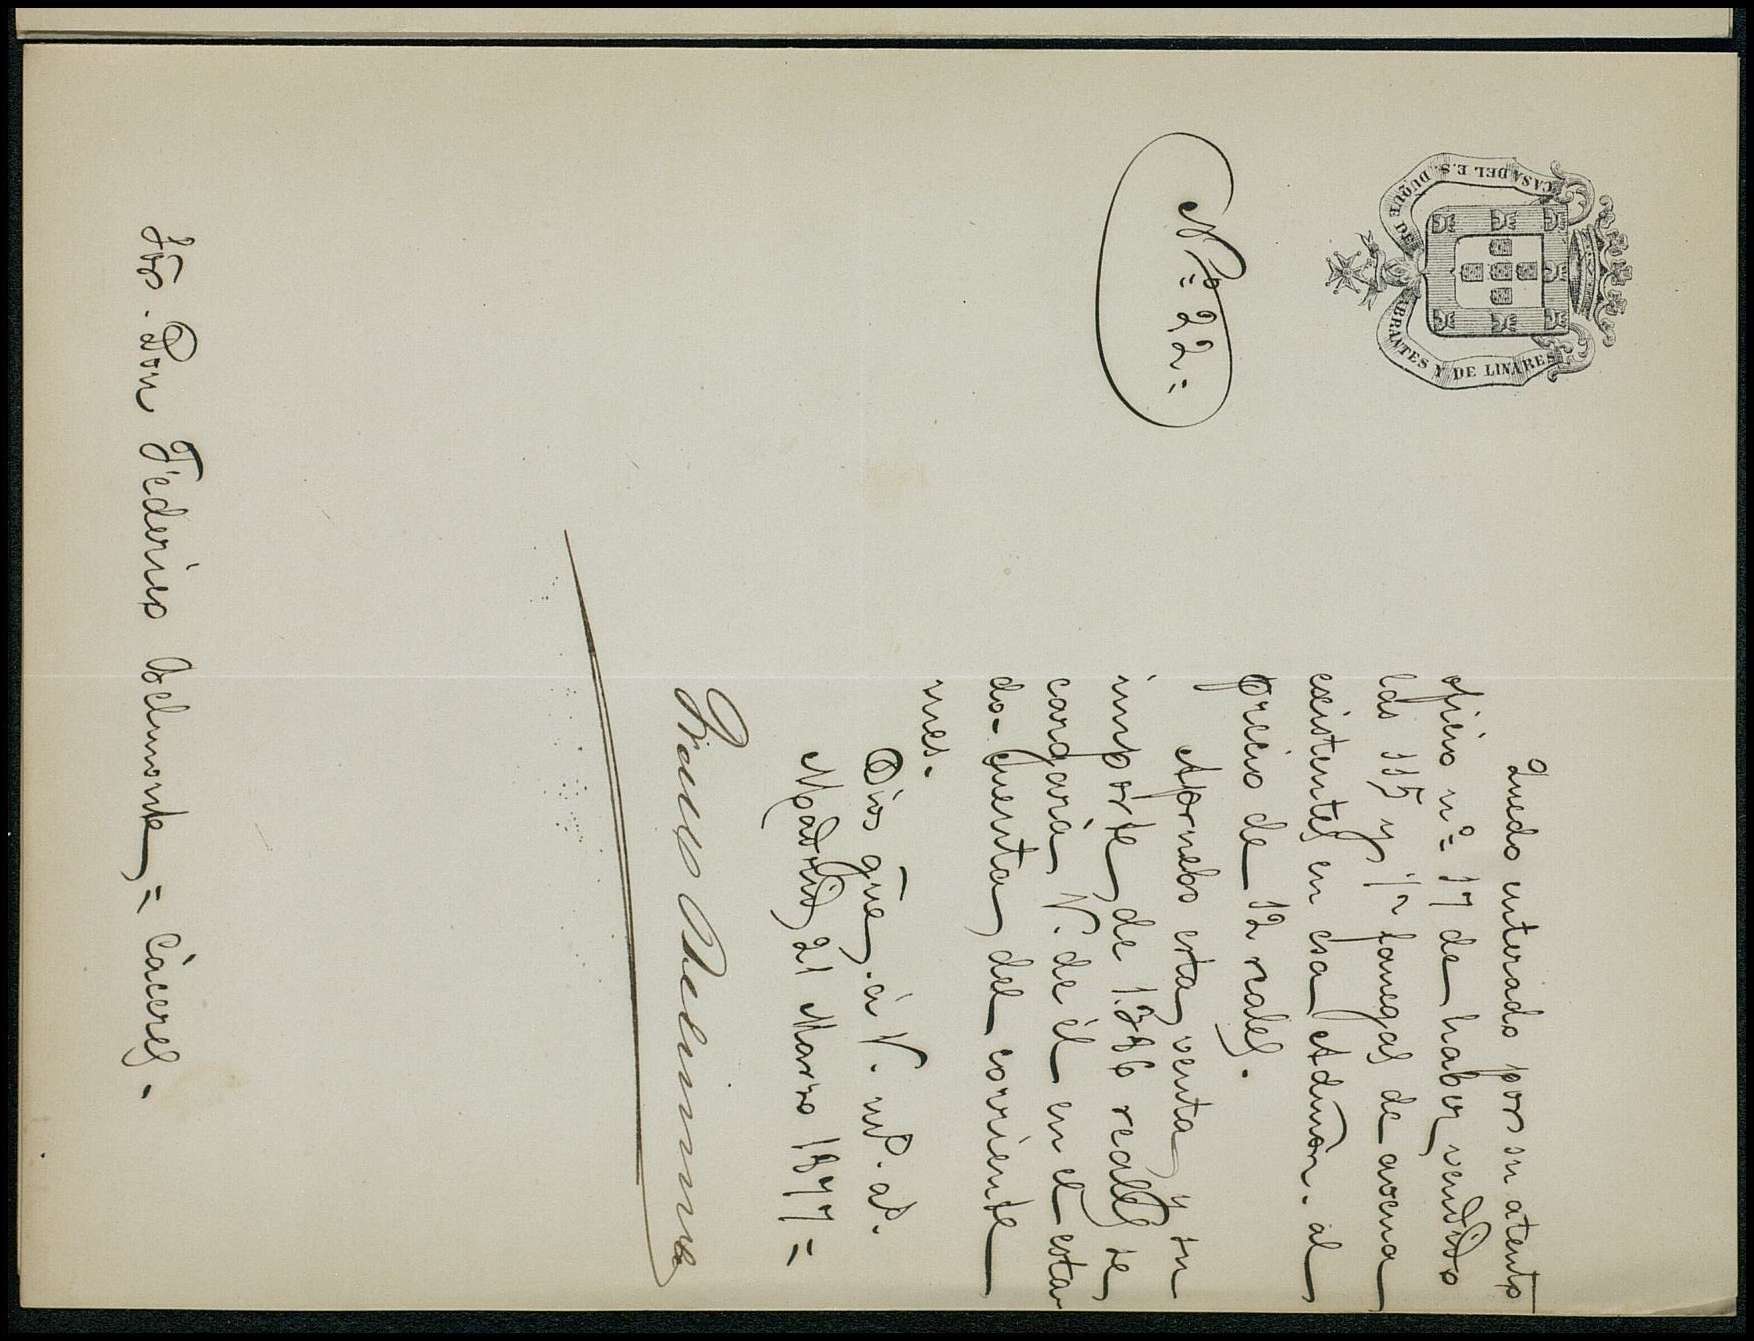 CASA DEL E.S. DUQUE DE ABRANTES Y DE LINARES
Nº=22=
Quedo enterado por su atento
oficio nº= 17 de haber vendido
las 115 y 1/2 fanegas de avena
existentes en esa Admōn. al
precio de 12 reales.
Apruebo esta venta y su
importe de 1386 reales se
cargará V. de él en el esta-
do-cuenta del corriente
mes.
Dios güe. á V. mˢ. aˢ.
Madrid 21 Marzo 1877=
Sōr. Don Federico Belmonte= Cáceres.